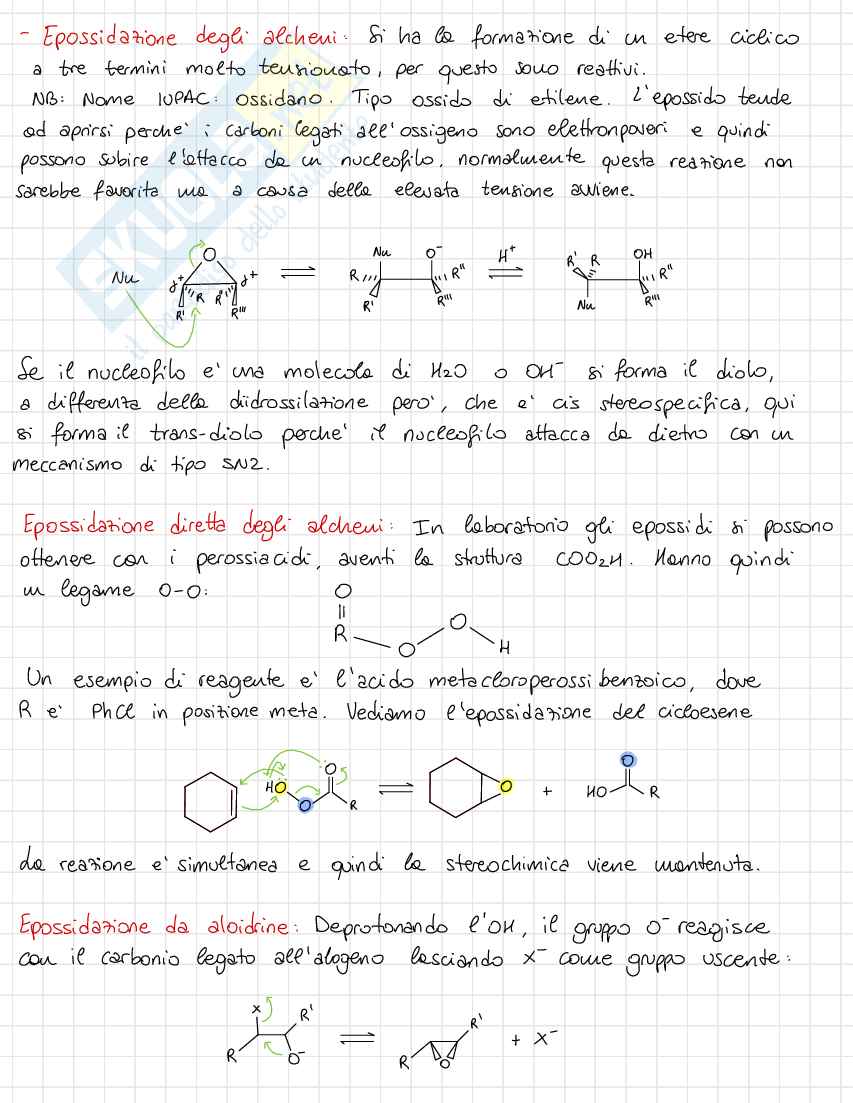 - Epossidazione degli alcheni: Si ha la formazione di un etere ciclico
a tre termini molto tensionato, per questo sono reattivi.
NB: Nome IUPAC: ossidano. Tipo ossido di etilene. L'epossido tende
ad aprirsi perche' i carboni legati all'ossigeno sono elettronpoveri e quindi
possono subire l'attacco da un nucleofilo, normalmente questa reazione non
sarebbe favorita ma a causa della elevata tensione avviene.
Nu δ+ O δ+ R R' R'' R''' ⇌ Nu O⁻ R R' R'' R''' H⁺ ⇌ R' R OH R'' R''' Nu
Se il nucleofilo e' una molecola di H2O o OH⁻ si forma il diolo,
a differenza della diidrossilazione pero', che e' cis stereospecifica, qui
si forma il trans-diolo perche' il nucleofilo attacca da dietro con un
meccanismo di tipo SN2.
Epossidazione diretta degli alcheni: In laboratorio gli epossidi si possono
ottenere con i perossiacidi, aventi la struttura COO2H. Hanno quindi
un legame O-O:
O
R O O H
Un esempio di reagente e' l'acido metacloroperossibenzoico, dove
R e' PhCl in posizione meta. Vediamo l'epossidazione del cicloesene
HO O O R ⇌ O + HO O R
La reazione e' simultanea e quindi la stereochimica viene mantenuta.
Epossidazione da aloidrine: Deprotonando l'OH, il gruppo O⁻ reagisce
con il carbonio legato all'alogeno lasciando X⁻ come gruppo uscente:
X R' R O⁻ ⇌ R' R O + X⁻
SKUOLA.net
il paradiso dello studente